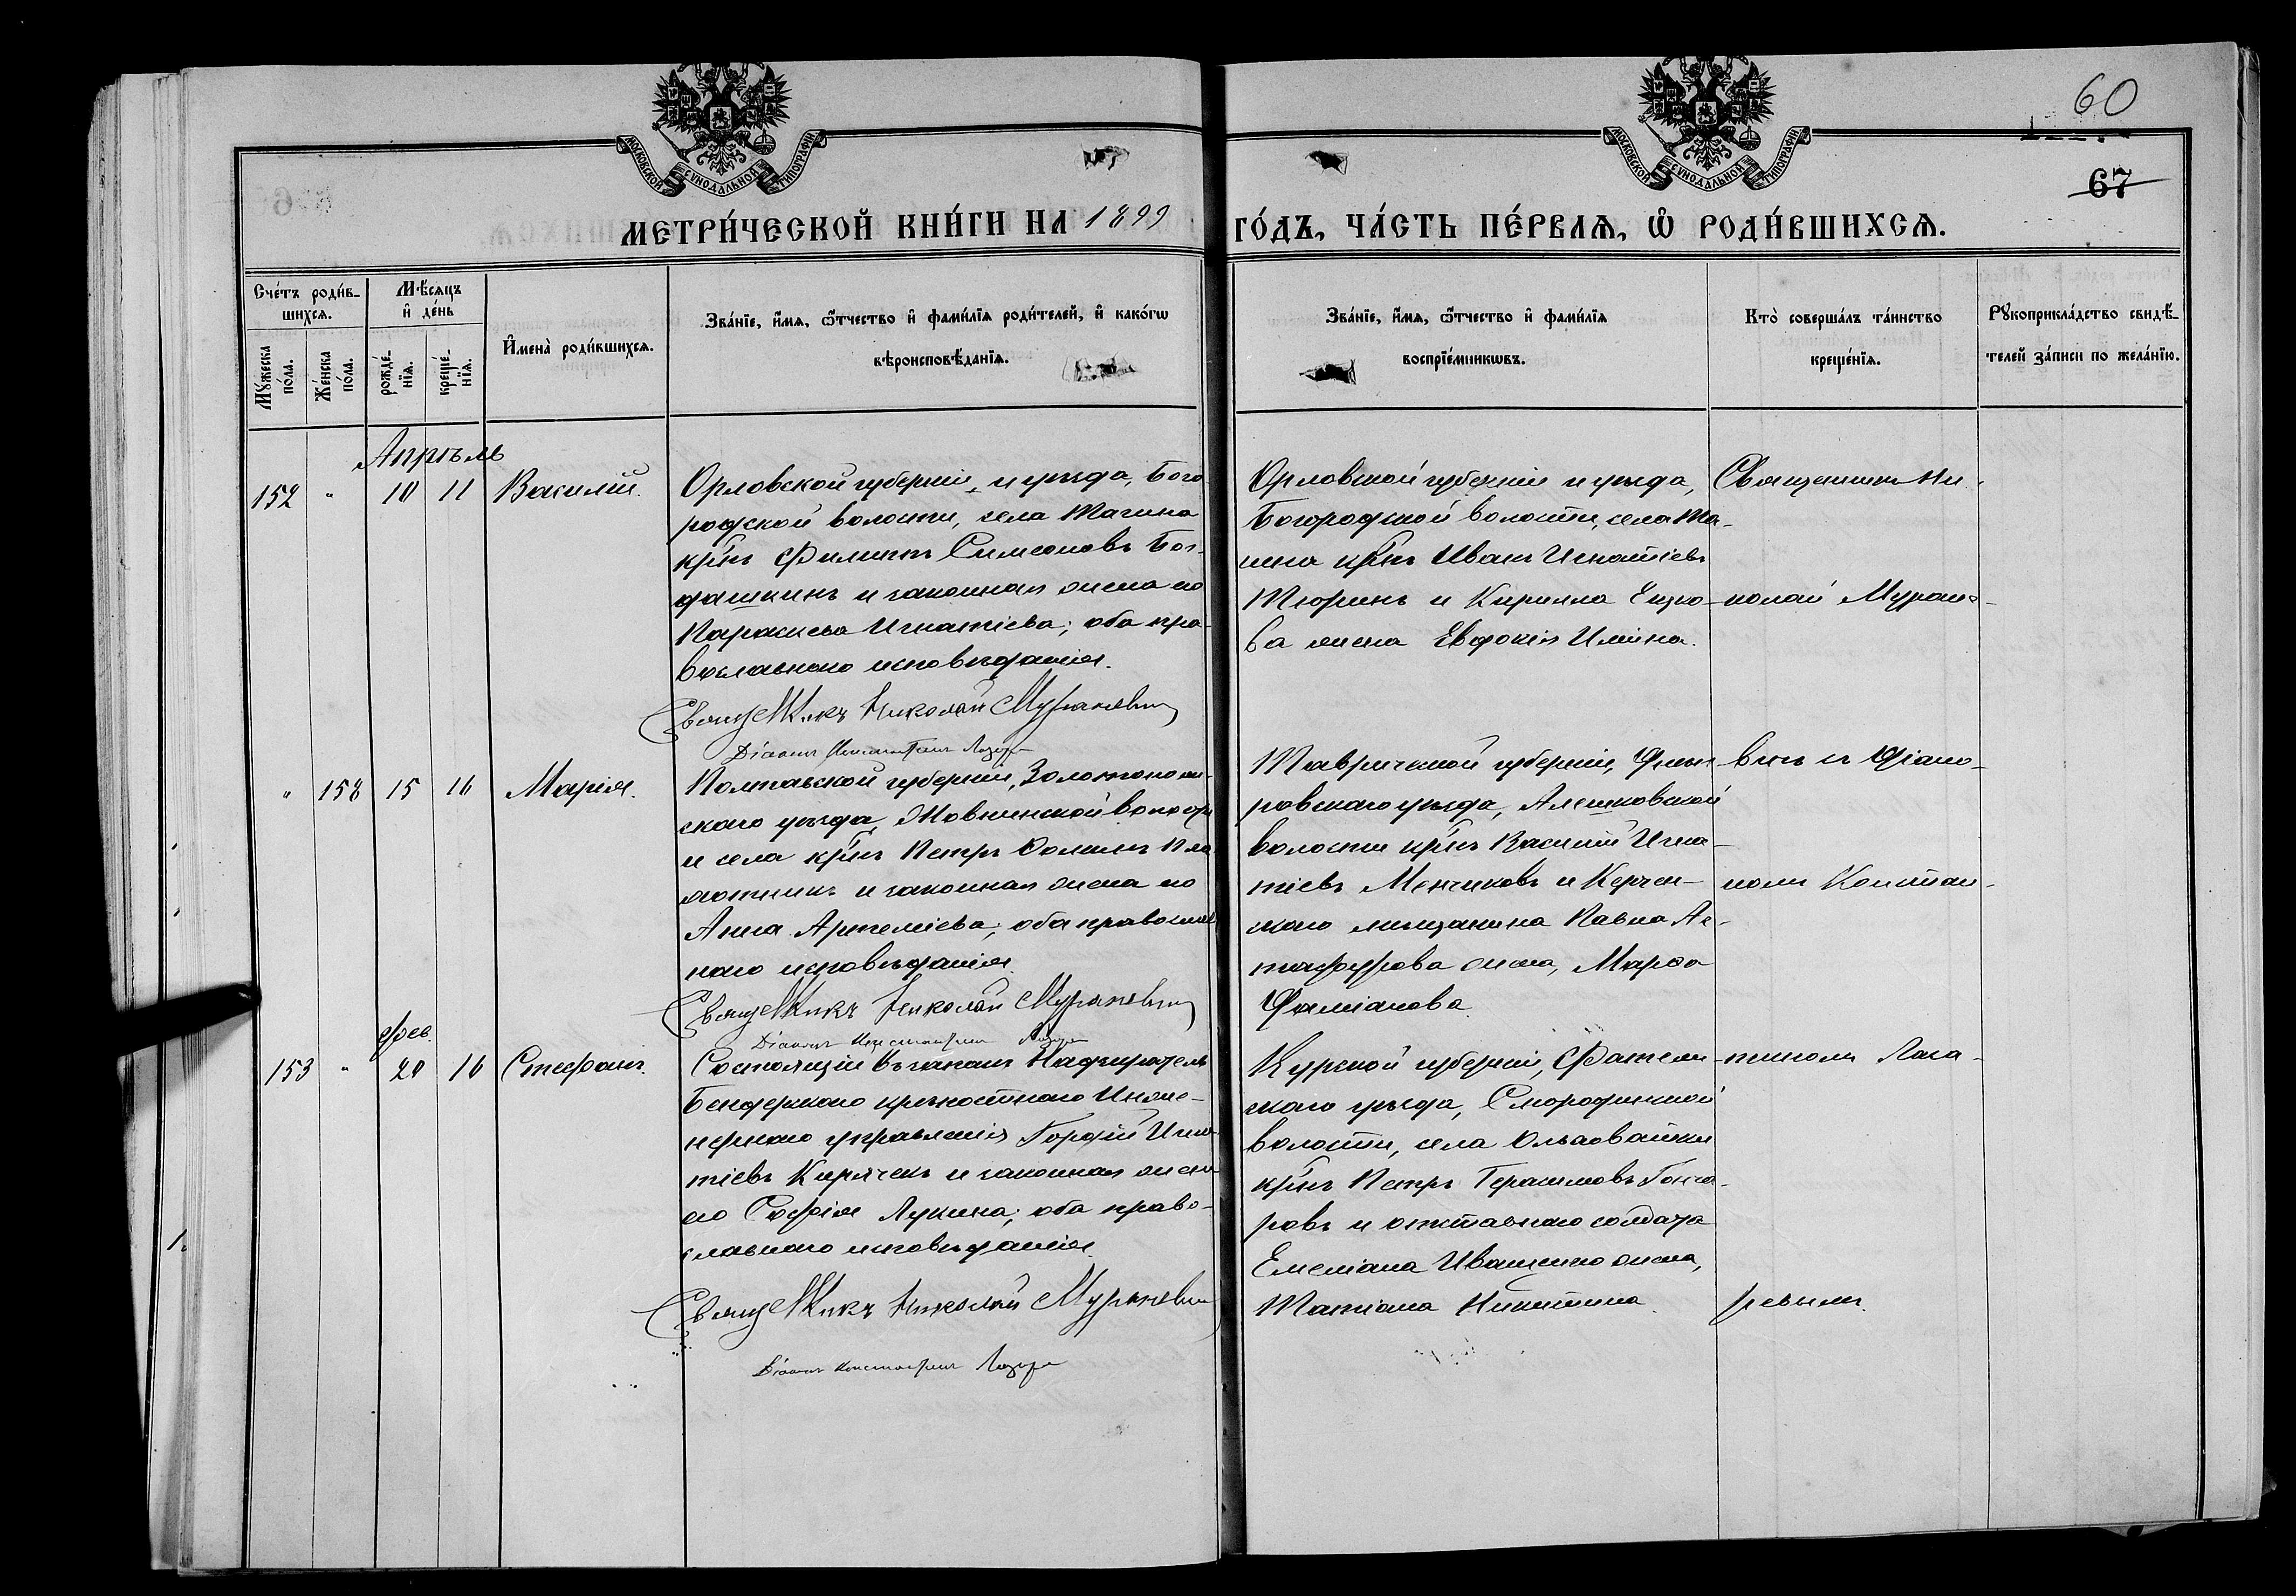 МОСКОВСКОЙ СѴНОДАЛЬНОЙ ТИПОГРАФІИ
МОСКОВСКОЙ СѴНОДАЛЬНОЙ ТИПОГРАФІИ
60
67
МЕТРИ́ЧЕСКОЙ КНИ́ГИ НА 1899 ГО́ДЪ, ЧА́СТЬ ПЕ́РВАѦ, Ѡ҆ РОДИ́ВШИХСѦ.
Сче́тъ роди́в-
шихсѧ.
Мѣ́сѧцъ
и҆ де́нь
Мꙋ́жеска
по́ла.
Же́нска
по́ла.
рожде́-
нїѧ.
креще́-
нїѧ.
И҆мена̀ роди́вшихсѧ.
Зва́нїе, и҆́мѧ, ѻ҆́тчество и҆ фами́лїѧ роди́телей, и҆ како́гѡ
вѣроисповѣ́данїѧ.
Зва́нїе, и҆́мѧ, ѻ҆́тчество и҆ фами́лїѧ
воспрїе́мникѡвъ.
Кто̀ соверша́лъ та́инство
креще́нїѧ.
Рꙋкоприкла́дство свидѣ́-
телей за́писи по жела́нїю.
Апрѣль
152 " 10 11 Василій.
Орловской губерніи и уѣзда, Бого
родской волости, села Тагина
кр̃нъ Филиппъ Симеоновъ Бог-
дашкинъ и законная жена его
Параскева Игнатіева; оба пра-
вославнаго исповѣданія.
Священникъ Николай Мураневичъ
Діаконъ Константинъ
Орловской губерніи и уѣзда,
Богородской волости, села Та-
гина кр̃нъ Иванъ Игнатіевъ
Тюринъ и Кирилла
ва жена Евдокія Ильина.
Священникъ Ни-
колай Муране-
" 158 15 16 Марія.
Полтавской губерніи, Золотонош-
скаго уѣзда, Жовнинской волости
и села кр̃нъ Петръ
и законная жена его
Анна Артеміева; оба православ
наго исповѣданія.
Священникъ Николай Мураневичъ
Діаконъ Константинъ
Таврической губерніи, Днѣп-
ровскаго уѣзда, Алешковской
волости кр̃нъ Василій Игна-
тіевъ Менчиковъ и Керчен-
скаго мѣщанина Павла
жена, Марѳа
Даміанова.
вичъ и Діако-
номъ Констан-
фев.
153 " 20 16 Стефанъ.
Состоящій въ запасѣ Надзиратель
Бендерскаго крѣпостнаго Инже-
нернаго управленія Гордій Игна-
тіевъ Кирячекъ и законная жена
его Софія Лукина; оба право-
славнаго исповѣданія.
Священникъ Николай Мураневичъ
Діаконъ Константинъ
Курской губерніи, Фатеж-
скаго уѣзда, Смородинской
волости, села Ольховатки
кр̃нъ Петръ Герасимовъ Гонча-
ровъ и отставнаго солдата
Емеліана Иващенко жена,
Татіана Никитина.
тиномъ Лаза-
ревымъ.